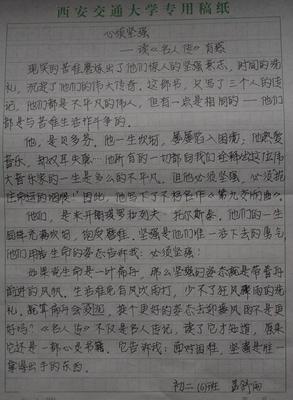 西安交通大学专用稿纸
必须坚强
——读《名人传》有感
现实的苦难磨炼出了他们惊人的坚强意志，时间的洗
礼，沉淀了他们的伟大传奇。这部书，只写了三个人的传
记，他们都是不平凡的伟人，但有一点是相同的——他们
都是与苦难生活作斗争的。
他，是贝多芬。他一生坎坷，屡屡陷入困境；他热爱
音乐，却双耳失聪——他所有的一切都向我们诠释出这位伟
大音乐家的一生是多么的不平凡。但他必须坚强，必须扼
住命运的咽喉！因此，他写下了不朽名作《第九交响曲》。
他们，是米开朗琪罗和列夫·托尔斯泰。他们的一生
同样充满坎坷，饱受磨难。坚强是他们唯一活下去的勇气
他们用生命的姿态告诉我：必须坚强！
如果说生命是一叶扁舟，那么坚强的姿态就是带着舟
前进的风帆。生活难免有风吹雨打，少不了狂风骤雨的洗
礼，既其而与会，换个更好的姿态去迎接风雨不是更
好吗？《名人传》不仅是名人传记，读了它才知道，原来
它还是一部心灵书籍。它告诉我：面对困难，坚强是唯一
拿得出手的东西。
初二(6)班